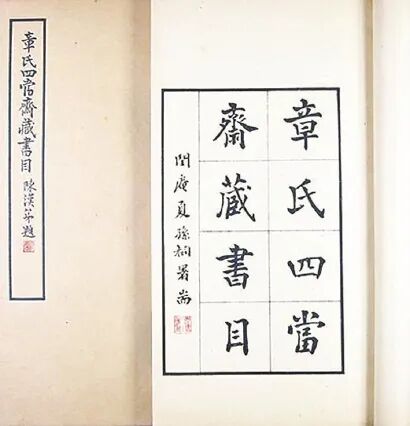 章氏四當齋藏書目 陳漢第題
章氏四當
齋藏書目
閏庵夏孫桐署耑